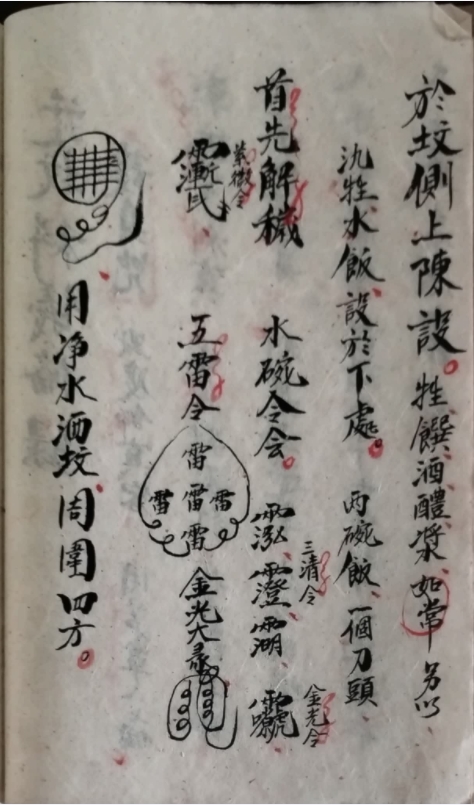 於坟側上陳設。牲饌酒醴漿、如常另以
氿牲水飯、設於下處。兩碗飯、一個刀頭、
首先解穢 水碗令会。
三清令
金光令
紫微令
五雷令 雷雷雷雷雷 金光大
用净水洒坟、周圍四方。